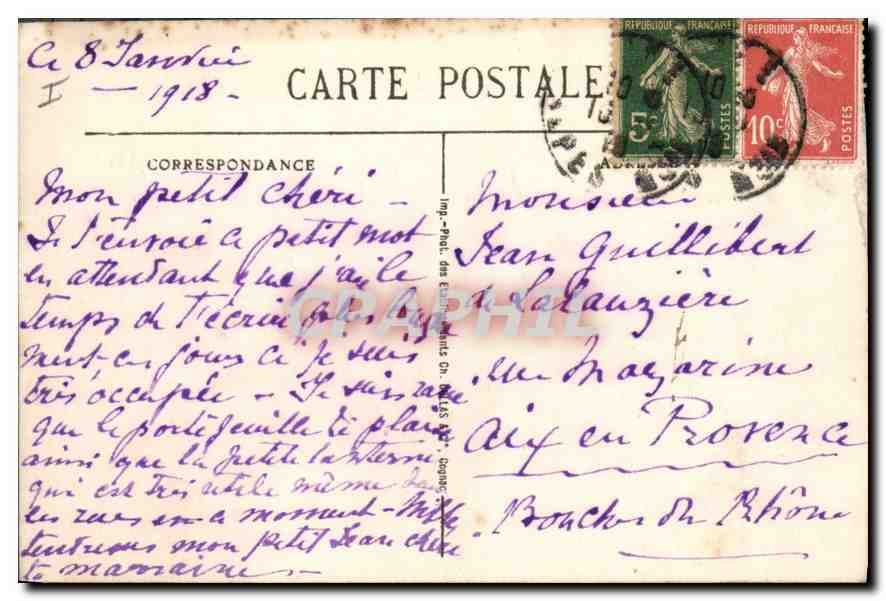 Ce 8 Janvier
1918 -
CARTE POSTALE
REPUBLIQUE FRANÇAISE
5c
POSTES
REPUBLIQUE FRANÇAISE
10c
POSTES
CORRESPONDANCE
Mon petit chéri -
Je t'envoie ce petit mot
en attendant que j'ai le
temps de t'écrire plus
ment, ces jours ci je suis
très occupée - Je suis
que le portefeuille te plaise
ainsi que la petite lanterne
qui est très utile même dans
les rues en ce moment -
tendresses mon petit Jean chéri
ta marraine -
Imp.-Phot. des Etablissements Ch. COLLAS & Cie, Cognac
Monsieur
Jean Guillibert
de Lalauzière
rue Mazarine
Aix en Provence
Bouches du Rhône
CPAPHIL